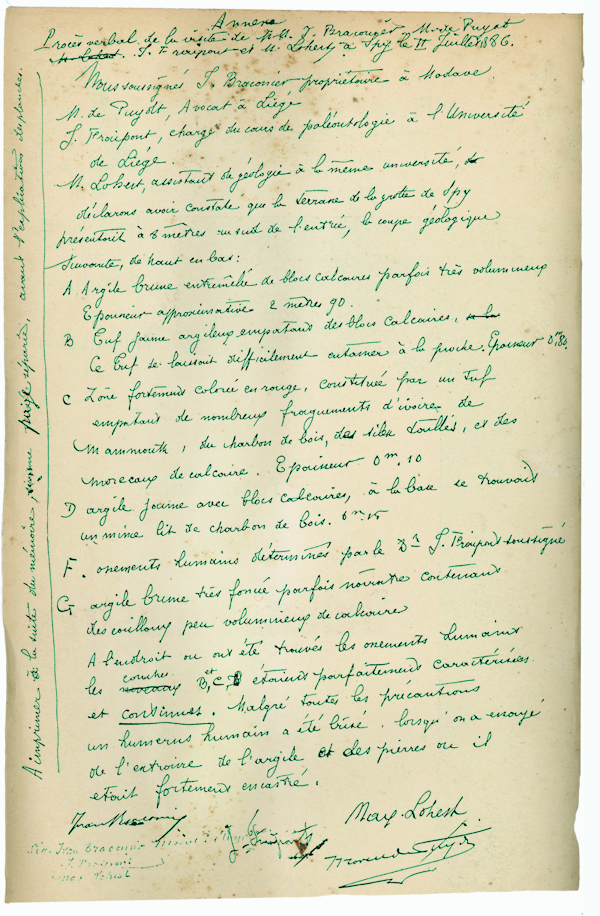 Annexe
Procès verbal de la visite de MM. J. Braconier, M. de Puydt
J. Fraipont et M. Lohest à Spy le 11 Juillet 1886.
Nous soussignés J. Braconier propriétaire à Modave.
M. de Puydt, Avocat à Liége
J. Fraipont, chargé du cours de paléontologie à l'Université
de Liége.
M. Lohest, assistant de géologie à la même université,
déclarons avoir constaté que la terrasse de la grotte de Spy
présentait à 8 mètres au sud de l'entrée, la coupe géologique
suivante, de haut en bas:
A Argile brune entremêlée de blocs calcaires parfois très volumineux
Epaisseur approximative 2 mètres 90.
B Tuf jaune argileux empatant des blocs calcaires,
Ce tuf se laissait difficilement entamer à la pioche. Epaisseur 0m,80.
C Zône fortement colorée en rouge, constituée par un tuf
empatant de nombreux fragments d'ivoire de
mammouth, du charbon de bois, des silex taillés, et des
morceaux de calcaire. Epaisseur 0m.10
D argile jaune avec blocs calcaires, à la base se trouvait
un mince lit de charbon de bois. 0m.15
F. ossements humains déterminés par le Dr J. Fraipont soussigné
G argile brune très foncée parfois noirâtre contenant
des cailloux peu volumineux de calcaire
A l'endroit ou ont été trouvés les ossements humains
les couches B, et C, étaient parfaitement caractérisées
et continues. Malgré toutes les précautions
un humerus humain a été brisé lorsqu'on a essayé
de l'extraire de l'argile et des pierres ou il
etait fortement encastré.
Jean Braconier
Max. Lohest
J. Fraipont
Marcel de Puydt
Jean Braconier
J. Fraipont
Max Lohest
A imprimer à la suite du mémoire, sur une page séparée, avant l'explication des planches.